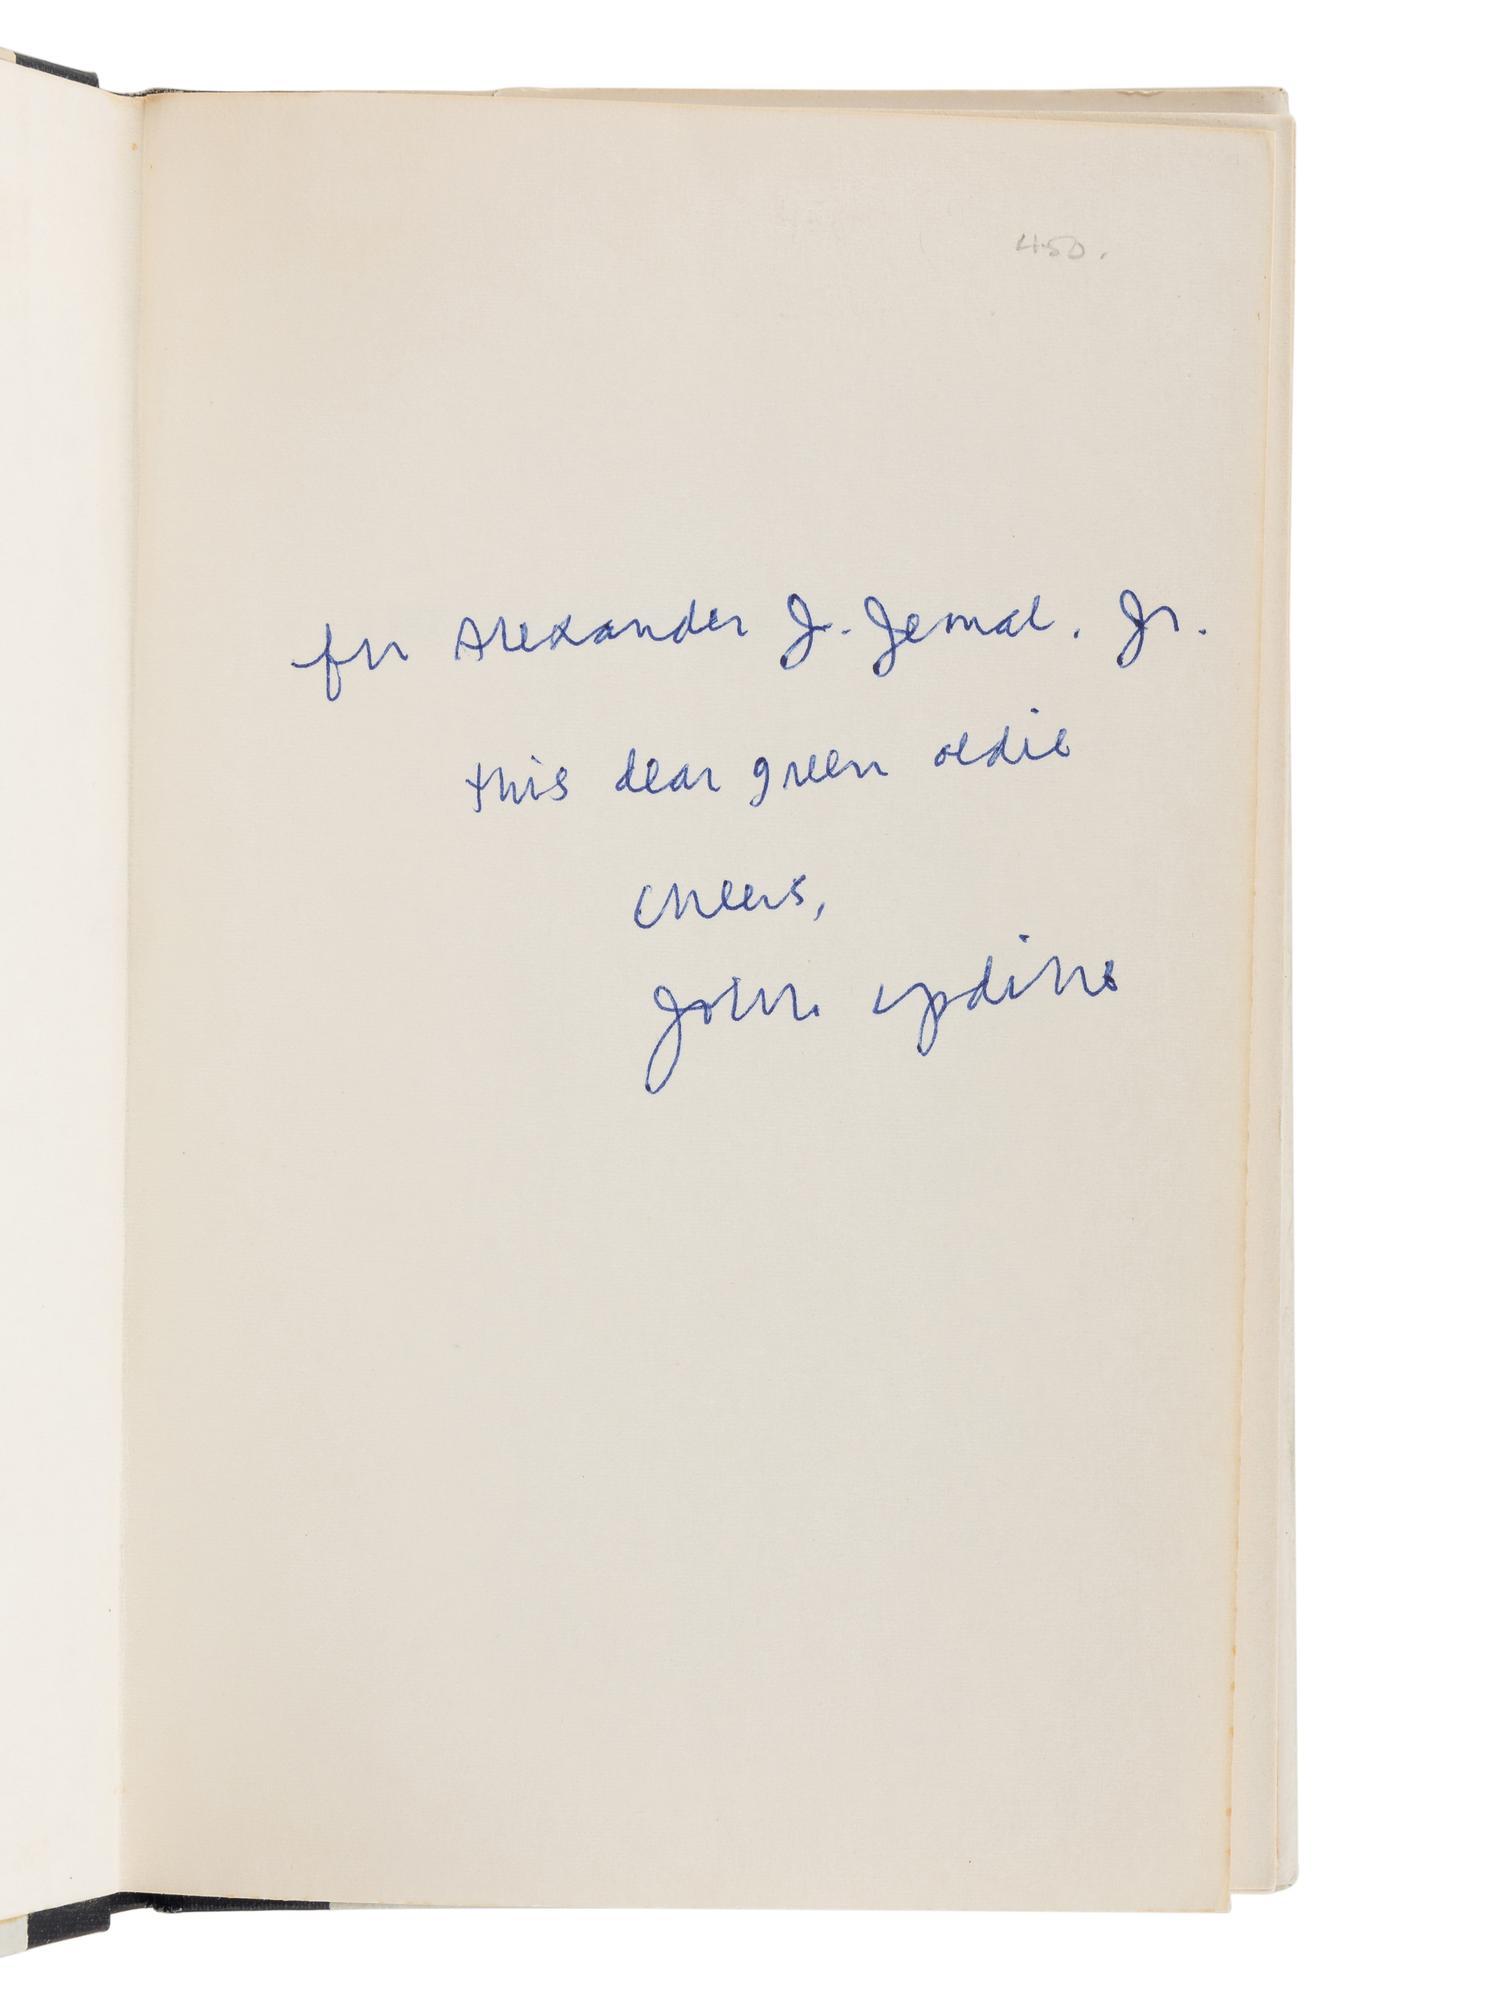 450.
for Alexander J. Jemal, Jr.
this dear green oldie
cheers,
John Updike